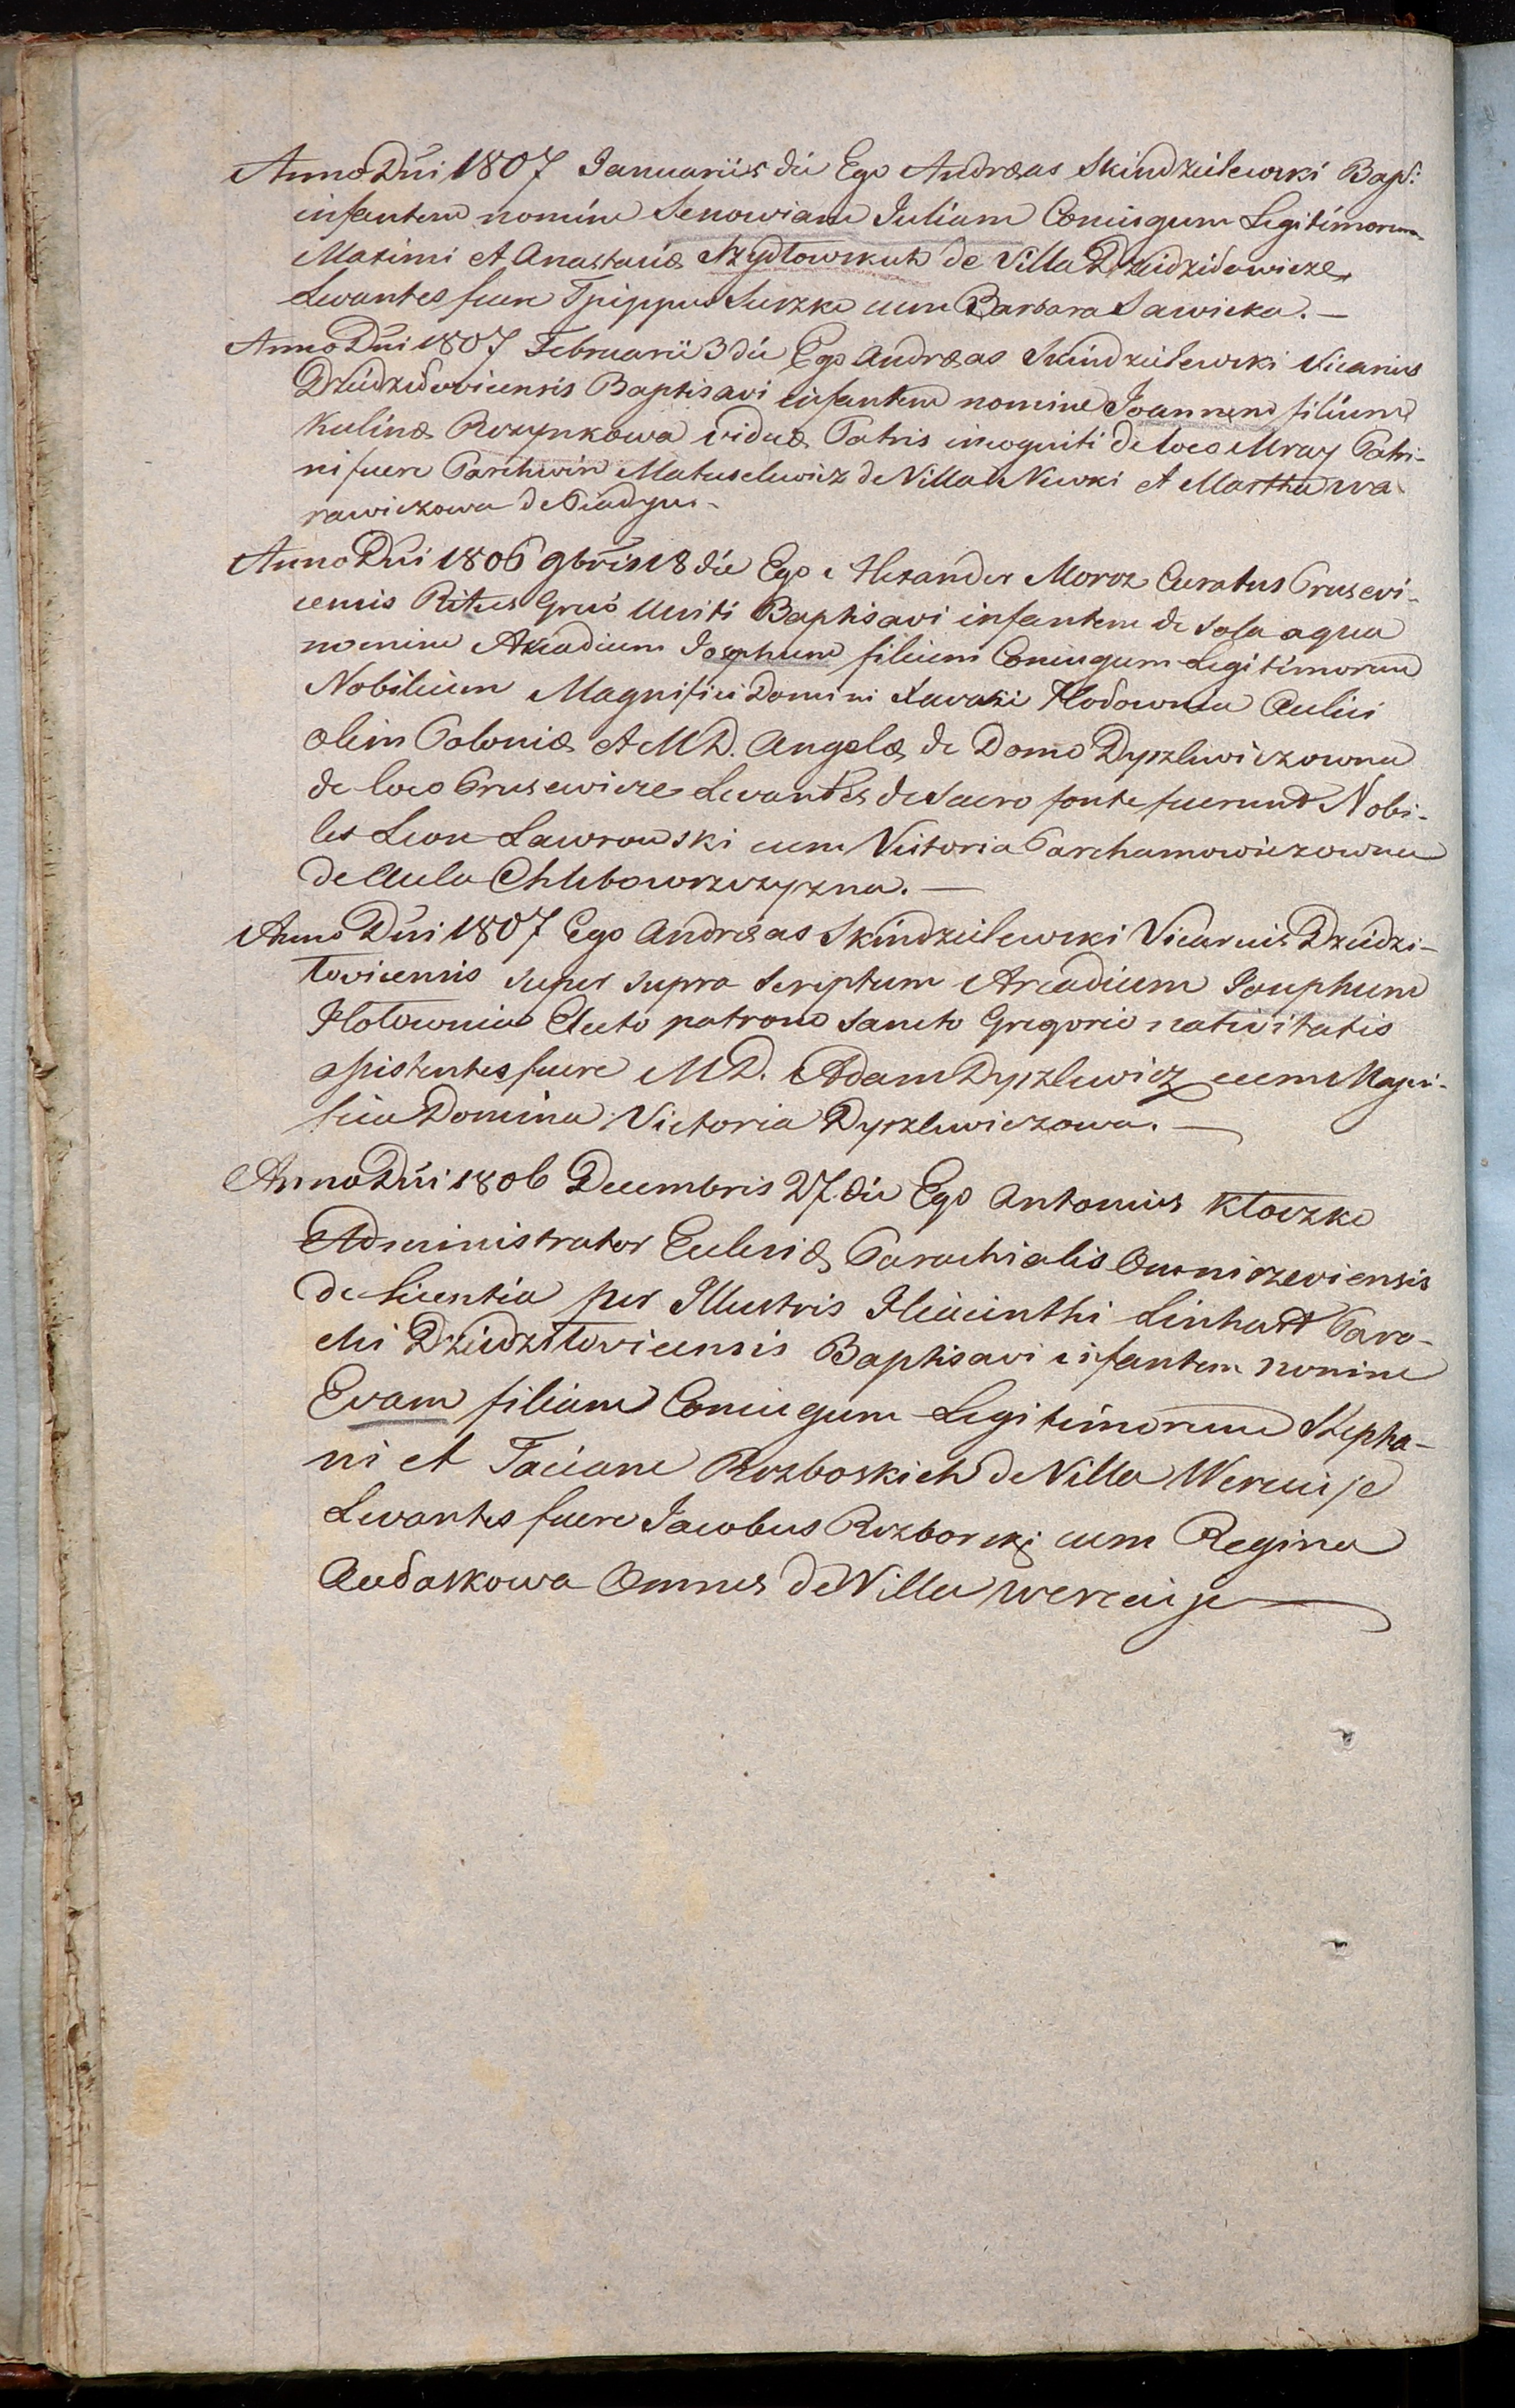 Anno Dñi 1807 Januarii 5 die Ego Andræas Skindzielewski Bap:
infantem nomine Senowiam Juliam Coniugum Legitimorum
Maximi et Anastasiæ Szydłowskich de Villa Dziedzidowicze
Levantes fuere Surzko cum Barbara Sawicka. —
Anno Dñi 1807 Februarii 3 die Ego Andræas Skindzielewski Vicarius
Dziudzidovicensis Baptisavi infantem nomine Joannem filium
Kulinæ Rozynkowa viduæ Patris incogniti de loco Mray Patri-
ni fuere Parchwin Matuselewicz de Villa Niwki et Martha
rawiczowa de
Anno Dñi 1806 9bris 18 die Ego Alexander Moroz Curatus Prusevi-
censis Ritus Græco Uniti Baptisavi infantem de sola aqua
nomine Arcadium Josephum filium Coniugum Legitimorum
Nobilium Magnifici Domini Xaverii Aulici
olim Poloniæ et M D. Angelæ de Domo Dyszlewiczowna
de loco Prusewicze Levantes de Sacro fonte fuerunt Nobi-
les Leon Lawrowski cum Victoria Parchamowiczowna
de Aula Chlebowszczyzna. —
Anno Dñi 1807 Ego Andræas Skindzielewski Vicarius Dziudzi-
tovicensis super supra scriptum Arcadium Josephum
Electo patrono Sancto Gregorio nativitatis
assistentes fuere M D. Adam Dyszlewicz cum Magni-
fica Domina Victoria Dyszlewiczowa. —
Anno Dñi 1806 Decembris 27 die Ego Antonius Kłoczko
Administrator Eclesiæ Parochialis Ononiszeviensis
de licentia per Illustris Hiacinthi Linhart Paro-
chi Dziudzitovicensis Baptisavi infantem nomine
Evam filiam Coniugum Legitimorum Stepha-
ni et Taciane Rozboskich de Villa Wereiije
Levantes fuere Jacobus Rozborski cum Regina
Audaskowa Omnes de Villa Wereiije